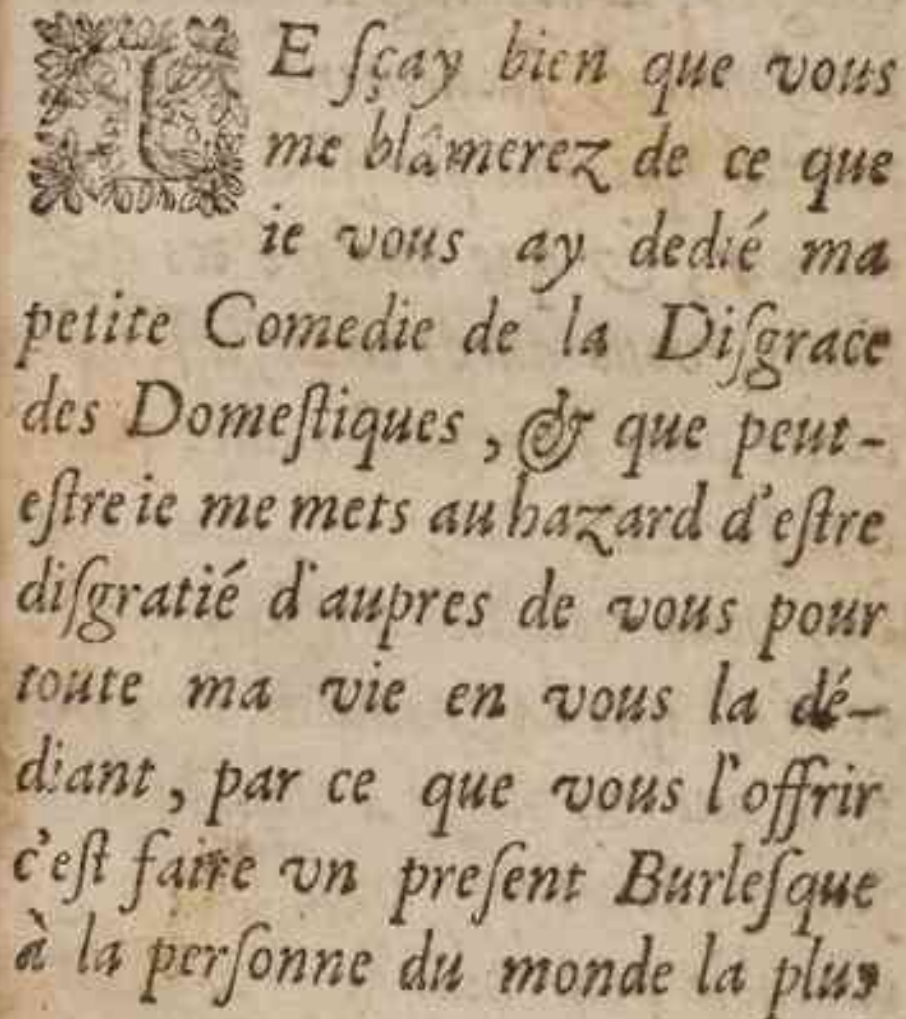 IE ſçay bien que vous
me blâmerez de ce que
ie vous ay dedié ma
petite Comedie de la Diſgrace
des Domeſtiques, & que peut-
eſtre ie me mets au hazard d'eſtre
diſgratié d'aupres de vous pour
toute ma vie en vous la dé-
diant, par ce que vous l'offrir
c'eſt faire vn preſent Burleſque
à la perſonne du monde la plus